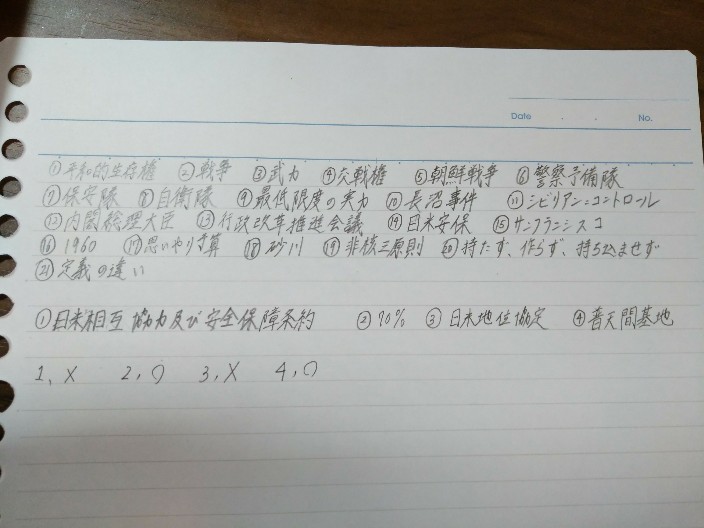 Date . . No.
①平和的生存権 ②戦争 ③武力 ④交戦権 ⑤朝鮮戦争 ⑥警察予備隊
⑦保安隊 ⑧自衛隊 ⑨最低限度の実力 ⑩長沼事件 ⑪シビリアン=コントロール
⑫内閣総理大臣 ⑬行政改革推進会議 ⑭日米安保 ⑮サンフランシスコ
⑯1960 ⑰思いやり予算 ⑱砂川 ⑲非核三原則 ⑳持たず、作らず、持ち込ませず
㉑定義の違い
①日米相互協力及び安全保障条約 ②70% ③日米地位協定 ④普天間基地
1,× 2,○ 3,× 4,○